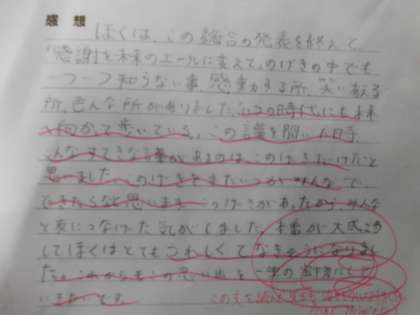 感想
ぼくは、この総合の発表を終えて、
「感謝を未来のエールに変えて」のげきの中でも
一つ一つ知らない事、感動する所、笑い有る
所、色んな所がありました。いつの時代にも未来
へ向かって歩いている。この言葉を聞いた時、
こんなすてきな言葉があるのは、このげきだけだと
思いました。このげきをまたいつかみんなで
できたらなと思います。このげきがあったから、みんな
と友につなげた気がしました。本番が大成こう
してぼくはとてもうれしくてなきそうになりまし
た。これからもこの思い出を一生の
いきたいです。
この文を読んで先生も